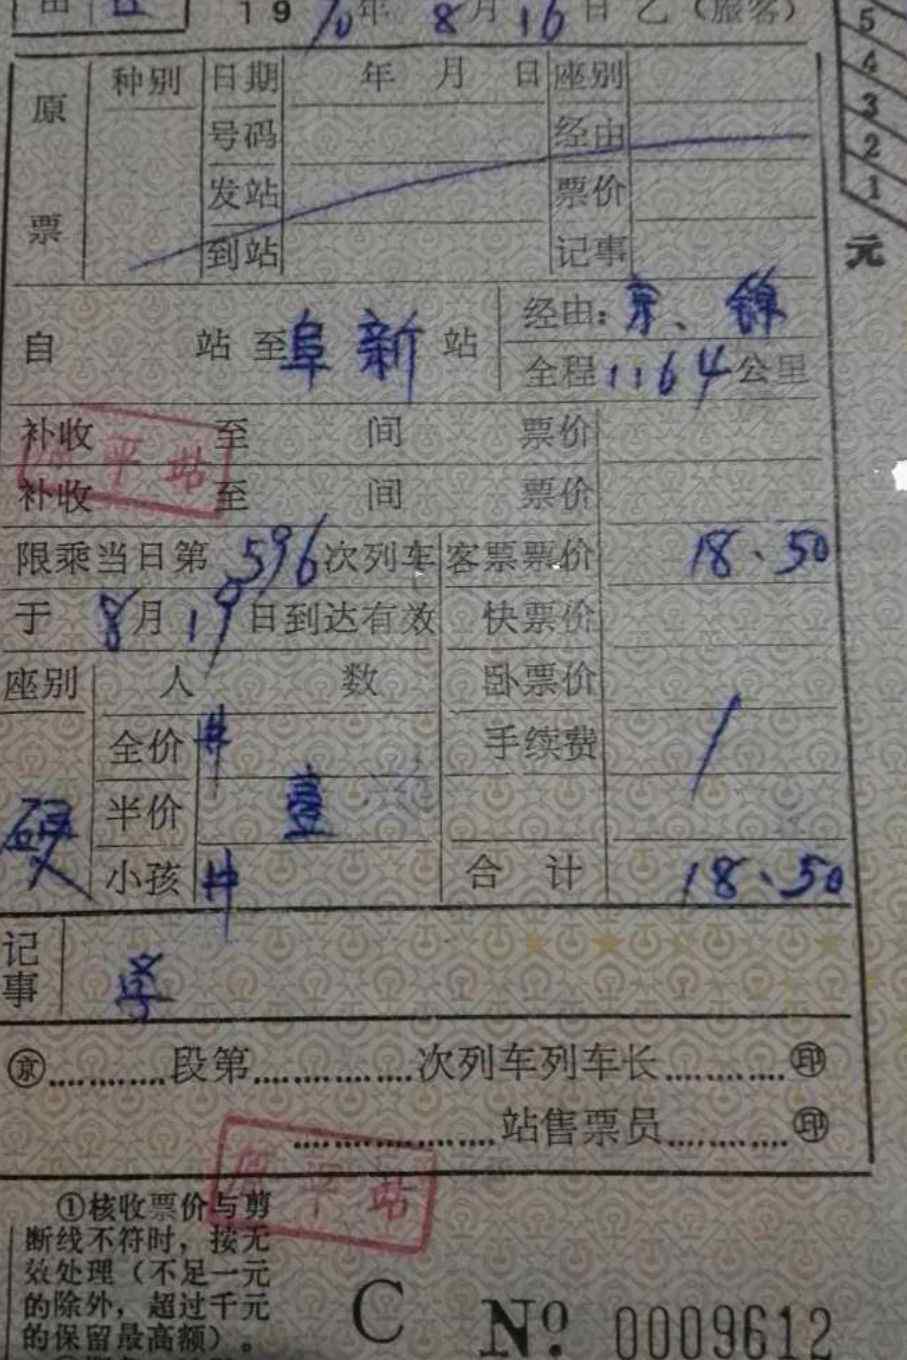 19 70年 8月 16日 乙（旅客）
5
4
3
2
1
元
原票 种别 日期 年 月 日 座别
号码 经由
发站 票价
到站 记事
自 站 至 阜新 站 经由：京、锦
全程 1164 公里
补收 至 间 票价
补收 至 间 票价
原平站
限乘当日第 596 次列车 客票票价 18.50
于 8月 19日到达有效 快票价
座别 人 数 卧票价
全价 # 手续费 /
硬 半价 壹
小孩 # 合 计 18.50
记事 学
㊞京............段第................次列车列车长............㊞
....................站售票员............㊞
原平站
①核收票价与剪
断线不符时，按无
效处理（不足一元
的除外，超过千元
的保留最高额）。
C No 0009612